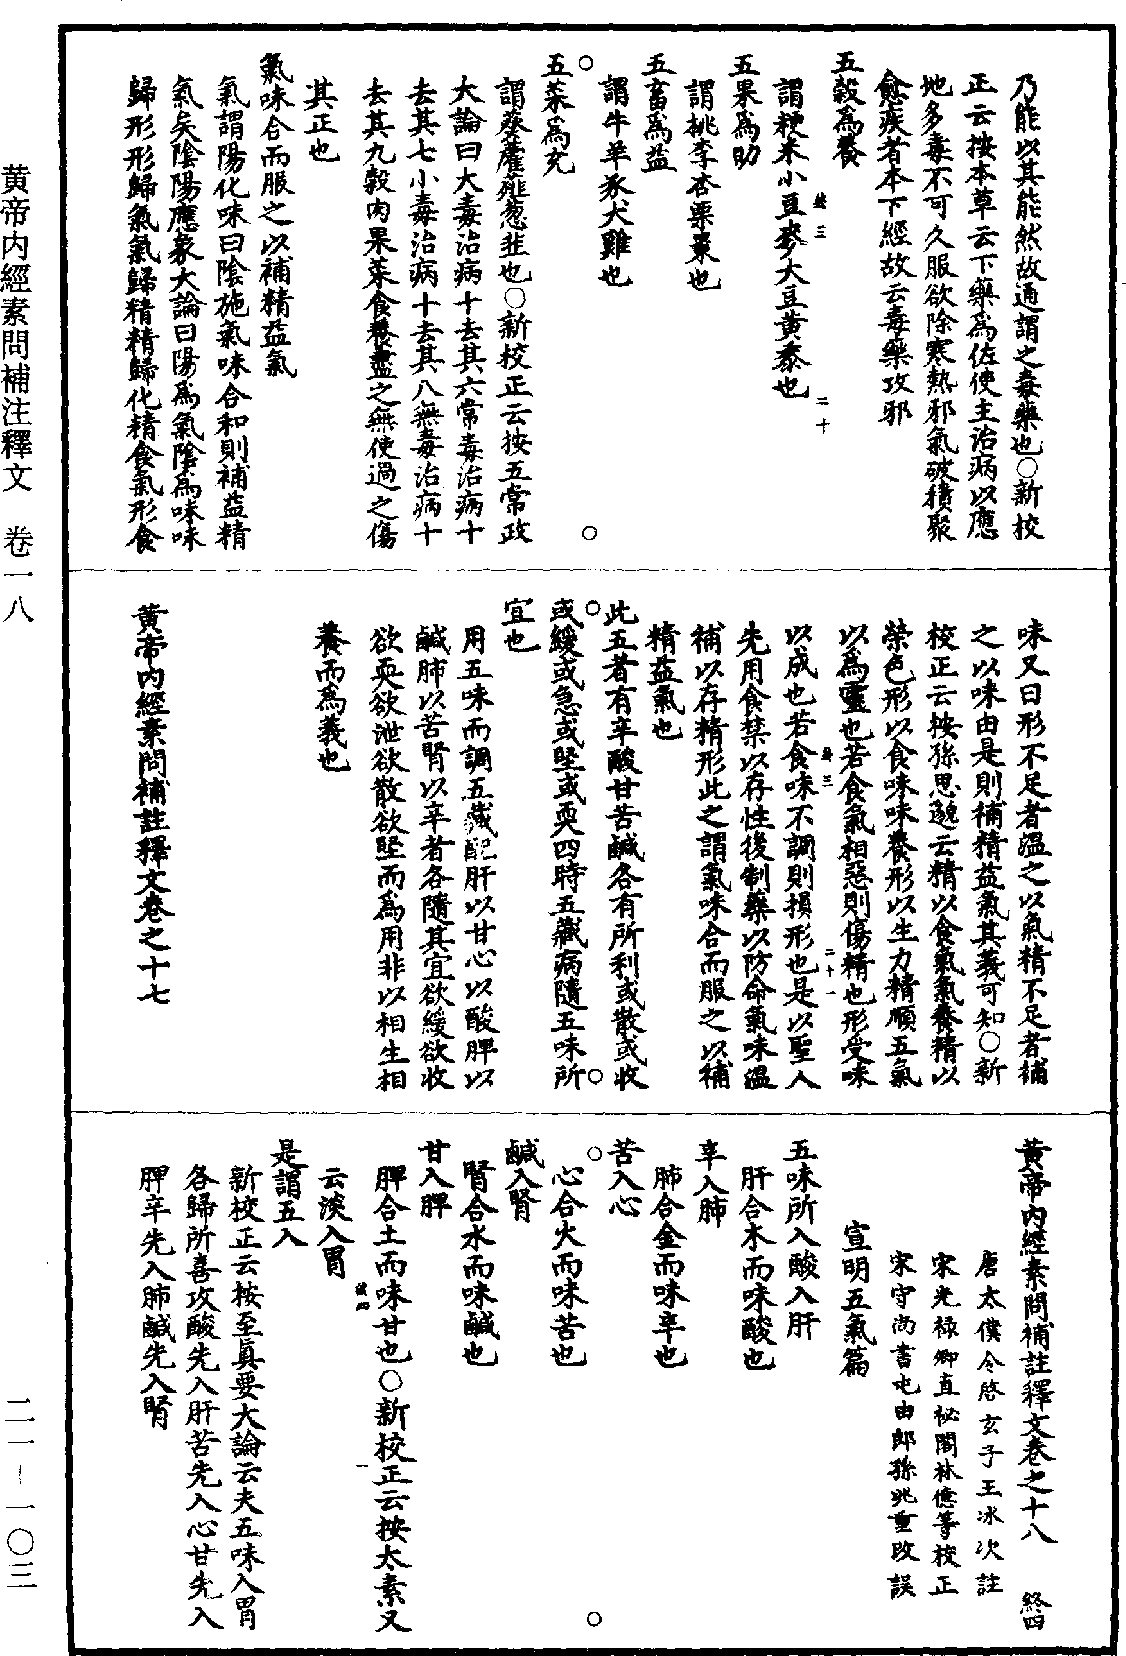 乃能以其能然故通謂之毒藥也○新校
正云按本草云下藥爲佐使主治病以應
地多毒不可久服欲除寒熱邪氣破積聚
愈疾者本下經故云毒藥攻邪
五穀爲養
謂粳米小豆麥大豆黃黍也
五果爲助
謂桃李杏栗棗也
五畜爲益
謂牛羊豕犬雞也
五菜爲充
謂葵藿薤葱韭也○新校正云按五常政
大論曰大毒治病十去其六常毒治病十
去其七小毒治病十去其八無毒治病十
去其九穀肉果菜食養盡之無使過之傷
其正也
氣味合而服之以補精益氣
氣謂陽化味曰陰施氣味合和則補益精
氣矣陰陽應象大論曰陽爲氣陰爲味味
歸形形歸氣氣歸精精歸化精食氣形食
味又曰形不足者溫之以氣精不足者補
之以味由是則補精益氣其義可知○新
校正云按孫思邈云精以食氣氣養精以
榮色形以食味味養形以生力精順五氣
以爲靈也若食氣相惡則傷精也形受味
以成也若食味不調則損形也是以聖人
先用食禁以存性後制藥以防命氣味溫
補以存精形此之謂氣味合而服之以補
精益氣也
此五者有辛酸甘苦鹹各有所利或散或收
或緩或急或堅或耎四時五藏病隨五味所
宜也
用五味而調五藏配肝以甘心以酸脾以
鹹肺以苦腎以辛者各隨其宜欲緩欲收
欲耎欲泄欲散欲堅而爲用非以相生相
養而爲義也
黃帝內經素問補註釋文卷之十七
黃帝內經素問補註釋文卷之十八 終四
唐太僕令啓玄子王冰次註
宋光祿卿直祕閣林億等校正
宋守尚書屯田郎孫兆重改誤
宣明五氣篇
五味所入酸入肝
肝合木而味酸也
辛入肺
肺合金而味辛也
苦入心
心合火而味苦也
鹹入腎
腎合水而味鹹也
甘入脾
脾合土而味甘也○新校正云按太素又
云淡入胃
是謂五入
新校正云按至真要大論云夫五味入胃
各歸所喜攻酸先入肝苦先入心甘先入
脾辛先入肺鹹先入腎
黄帝内經素問補注釋文 卷一八
二一-一〇三